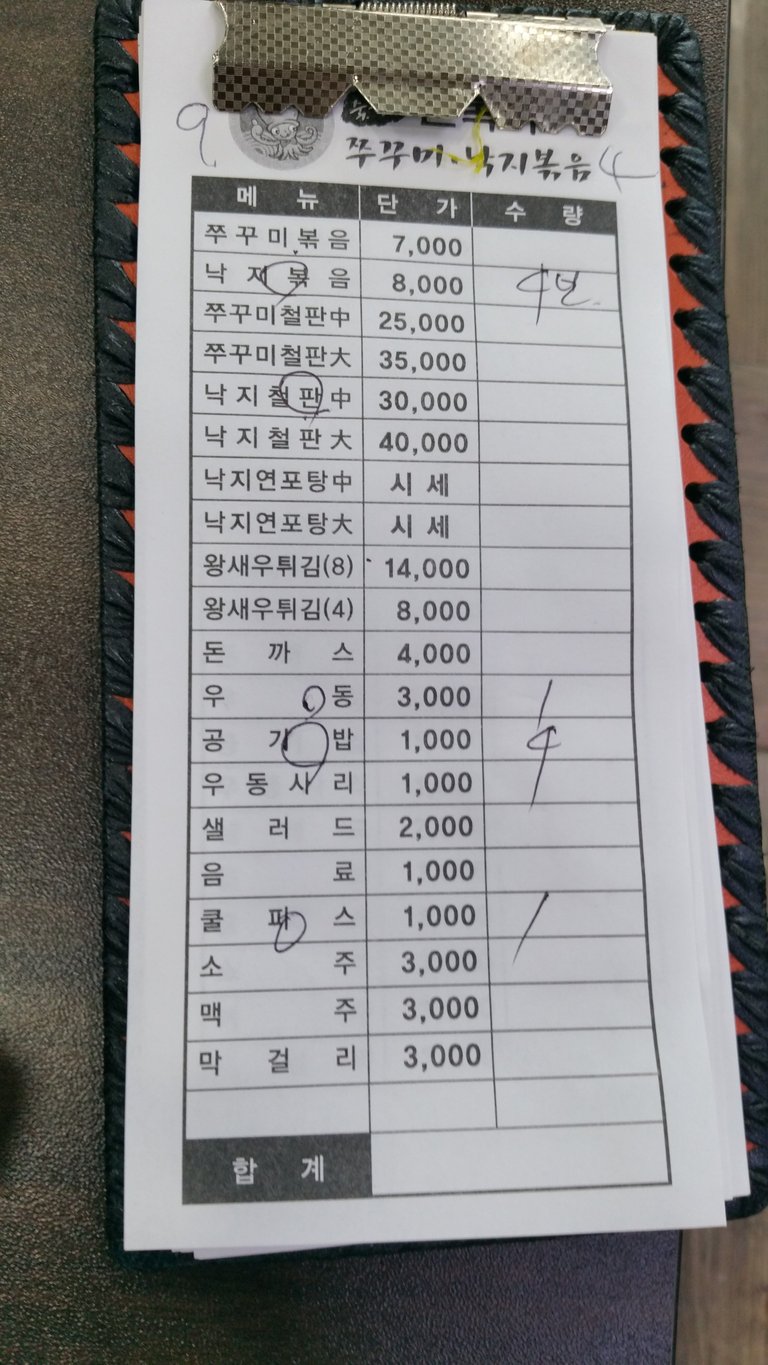 9
쭈꾸미·낙지볶음 4
메 뉴 단 가 수 량
쭈꾸미볶음 7,000
낙지볶음 8,000 4번
쭈꾸미철판中 25,000
쭈꾸미철판大 35,000
낙지철판中 30,000
낙지철판大 40,000
낙지연포탕中 시세
낙지연포탕大 시세
왕새우튀김(8) 14,000
왕새우튀김(4) 8,000
돈까스 4,000
우동 3,000 1
공기밥 1,000 4
우동사리 1,000
샐러드 2,000
음료 1,000
쿨피스 1,000 1
소주 3,000
맥주 3,000
막걸리 3,000
합 계